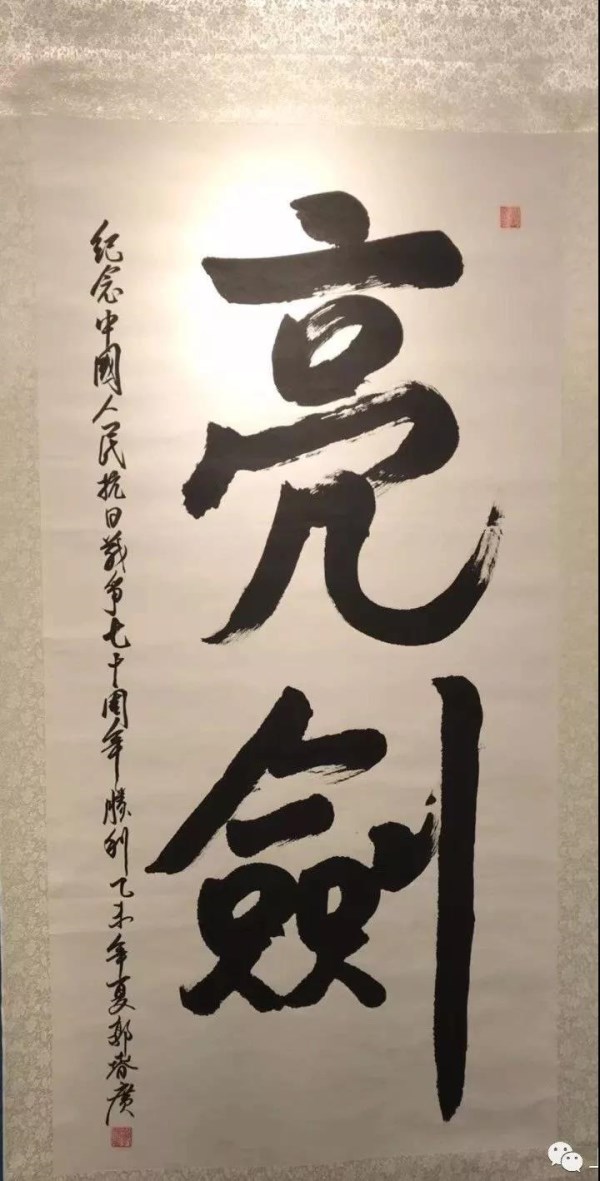 亮劍
紀念中國人民抗日戰争七十周年勝利乙未年夏郭春廣